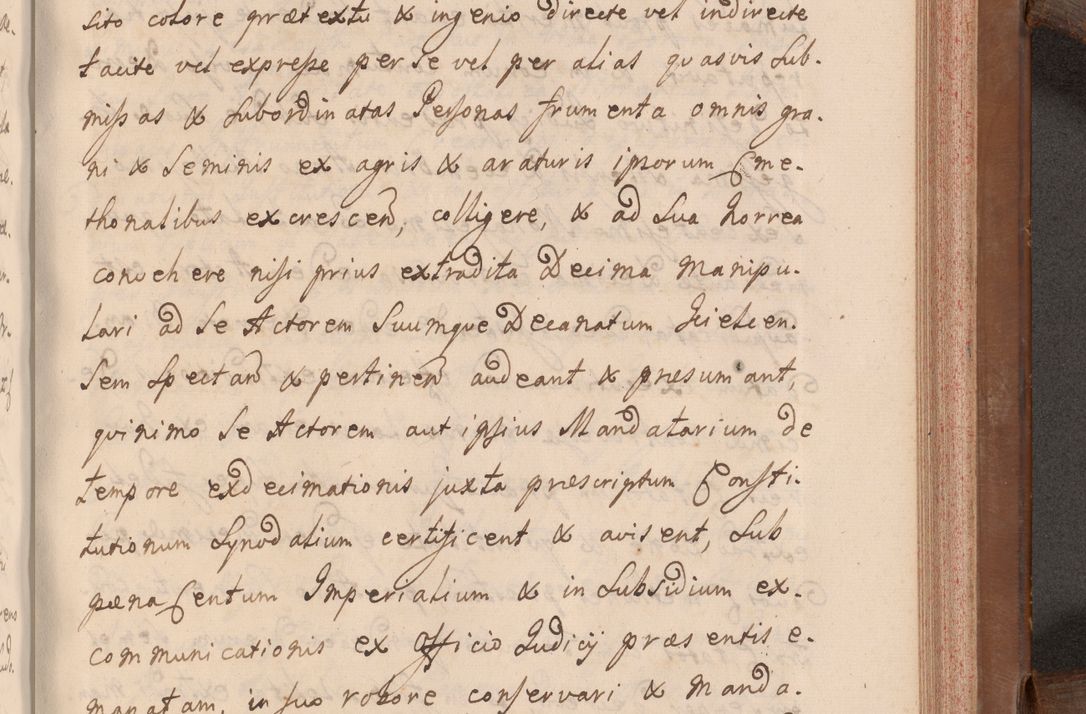 sito colore prætextu & ingenio directe vel indirecte
tacite vel expresse per se vel per alias quasvis Sub-
missas & Subordinatas Personas frumenta omnis gra-
ni & Seminis ex agris & araturis ipsorum Cme-
thonalibus excrescen, colligere, & ad Sua horrea
convehere nisi prius extradita Decima Manipu-
lari ad Se Actorem Suumque Decanatum Kielcen-
sem Spectan & pertinen audeant & præsumant,
quinimo Se Actorem aut ipsius Mandatarium de
tempore exdecimationis juxta præscriptum Consti-
tutionum Synodalium certificent & avisent, Sub
pæna Centum Imperialium & in Subsidium ex-
communicationis ex Officio Judicij præsentis e-
manatam, in suo robore conservari & Manda-